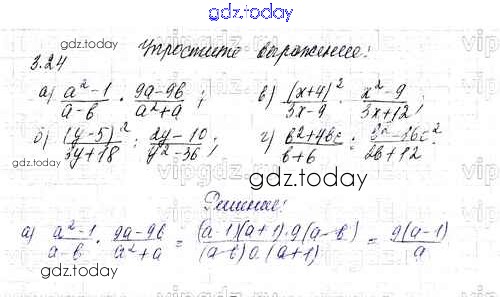 gdz.today
3.24 Упростите выражение:
а) (a² - 1)/(a - b) · (9a - 9b)/(a² + a) ; в) (x + 4)²/(3x - 9) · (x² - 9)/(3x + 12) ;
б) (y - 5)²/(3y + 18) : (2y - 10)/(y² - 36) ; г) (b² + 4bc)/(b + 6) : (b² - 16c²)/(2b + 12) .
gdz.today
Решение:
а) (a² - 1)/(a - b) · (9a - 9b)/(a² + a) = ((a - 1)(a + 1) · 9(a - b))/((a - b) a (a + 1)) = 9(a - 1)/a
gdz.today